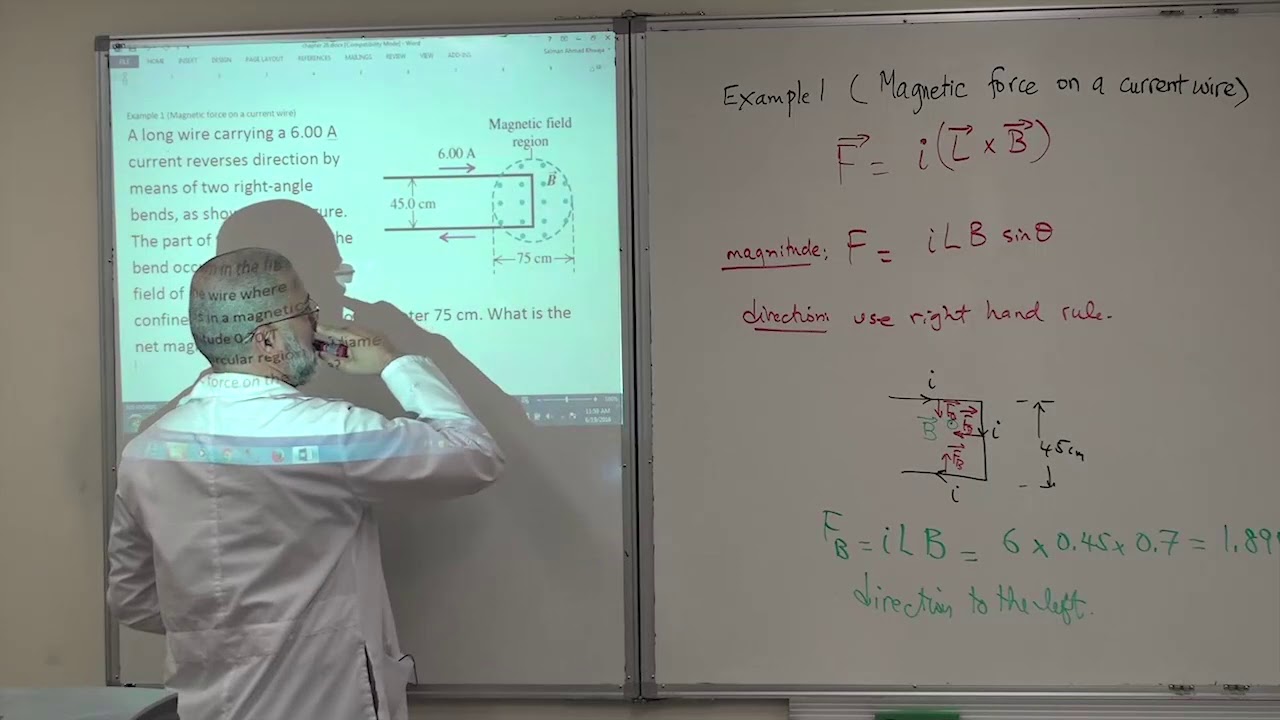 chapter 26.docx [Compatibility Mode] - Word
FILE HOME INSERT DESIGN PAGE LAYOUT REFERENCES MAILINGS REVIEW VIEW ADD-INS
Example 1 (Magnetic force on a current wire)
A long wire carrying a 6.00 A
current reverses direction by
means of two right-angle
bends, as
The part of
bend
field of
net
wire where
in a magnetic
ter 75 cm. What is the
force on the
Magnetic field
region
6.00 A
B
45.0 cm
75 cm
11:59 AM
Example 1 ( Magnetic force on a current wire)
F = i(L × B)
magnitude: F = i L B sin θ
direction: use right hand rule.
i
F_B
B
F_B
i
45cm
F_B
i
F_B = i L B = 6 × 0.45 × 0.7 = 1.89
direction to the left.